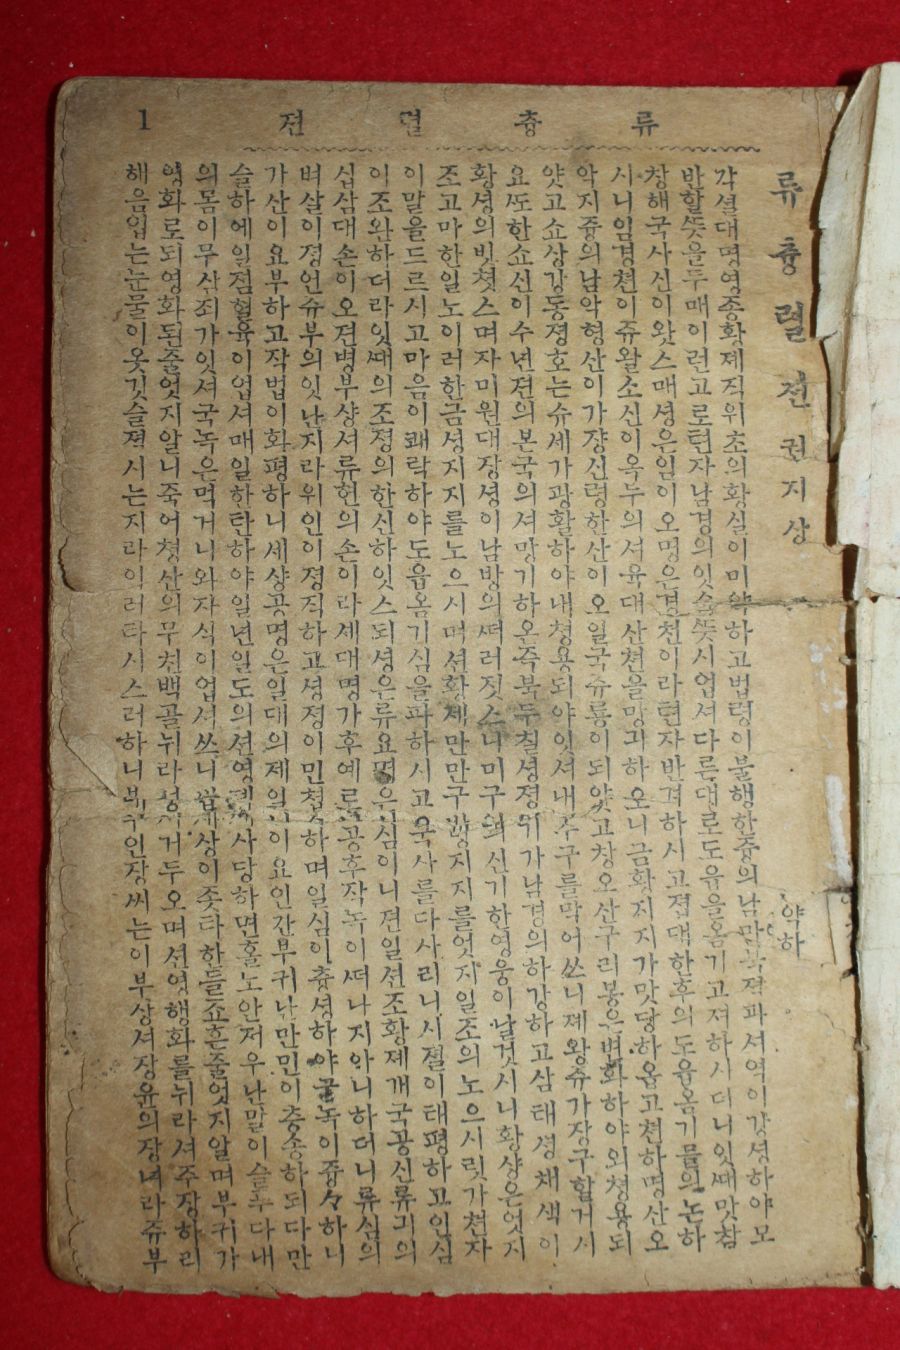 류츙렬젼 1
류츙렬젼권지상
각셜대명영종황졔직위초의황실이미약하고법령이불행한즁의남만북젹과셔역이강셩하야모
반할뜻을두매이런고로텬자남경의잇슬뜻시업셔다른대로도읍을옴기고져하시더니잇때맛참
창해국사신이왓스매셩은임이오명은경쳔이라텬자반겨하시고졉대한후의도읍옴기물의논하
시니임경쳔이쥬왈소신이옥누의셔육대산쳔을망긔하오니금황지지가맛당하옵고쳔하명산오
악지즁의남악형산이가쟝신령한산이오일국쥬룡이되얏고창오산구리봉은변화하야외쳥용되
얏고쇼상강동졍호는슈세가광활하야내쳥용되야잇셔내주구를막어쓰니졔왕슈가장구할거시
요또한쇼신이수년젼의본국의셔망기하온즉북두칠셩졍긔가남경의하강하고삼태셩채색이
황셩의빗쳣스며자미원대장셩이남방의떠러젓스니미구의신기한영웅이날것시니황샹은엇지
조고마한일노이러한금셩지지를노으시며션황졔만만구방지지를엇지일조의노으시릿가쳔자
이말을드르시고마음이쾌락하야도읍옴기심을파하시고국사를다사리니시졀이태평하고인심
이조완하더라잇때의조졍의한신하잇스되셩은류요명은심이니젼일션조황졔개국공신류긔의
십삼대손이오젼병부샹셔류헌의손이라세대명가후예로공후작녹이떠나지아니하더니류심의
벼살이졍언쥬부의잇난지라위인이졍직하고셩졍이민쳡하며일심이츙셩하야굴녹이즁々하니
가산이요부하고작법이화평하니세샹공명은일대의졔일이요인간부귀난만민이층송하되다만
슬하에일졈혈육이업셔매일한탄하야일년일도의션영졔사당하면홀노안저우난말이슬푸다내
의몸이무삼죄가잇셔국녹은먹거니와자식이업셔쓰니쌉셰상이죳타한들죠흔줄엇지알며부귀가
영화로되영화된줄엇지알니죽어쳥산의무친백골뉘라셔거두오며션영행화를뉘라셔주쟝하리
해음업는눈물이옷깃슬젹시는지라이러타시스러하니부인장씨는이부상셔장윤의장녀라쥬부
약하